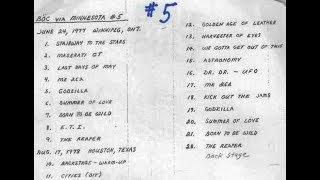 BÖC VIA MINNESOTA #5
#5
JUNE 24, 1977 WINNIPEG, ONT.
1. STAIRWAY TO THE STARS
2. MASERATI GT
3. LAST DAYS OF MAY
4. ME 262
5. GODZILLA
6. SUMMER OF LOVE
7. BORN TO BE WILD
8. E.T.I.
9. THE REAPER
AUG. 17, 1978 HOUSTON, TEXAS
10. BACKSTAGE - WARM-UP
11. CITIES
12. GOLDEN AGE OF LEATHER
13. HARVESTER OF EYES
14. WE GOTTA GET OUT OF THIS
15. ASTRONOMY
16. DR. DR. - UFO
17. ME 262
18. KICK OUT THE JAMS
19. GODZILLA
20. SUMMER OF LOVE
21. BORN TO BE WILD
22. THE REAPER
Back Stage